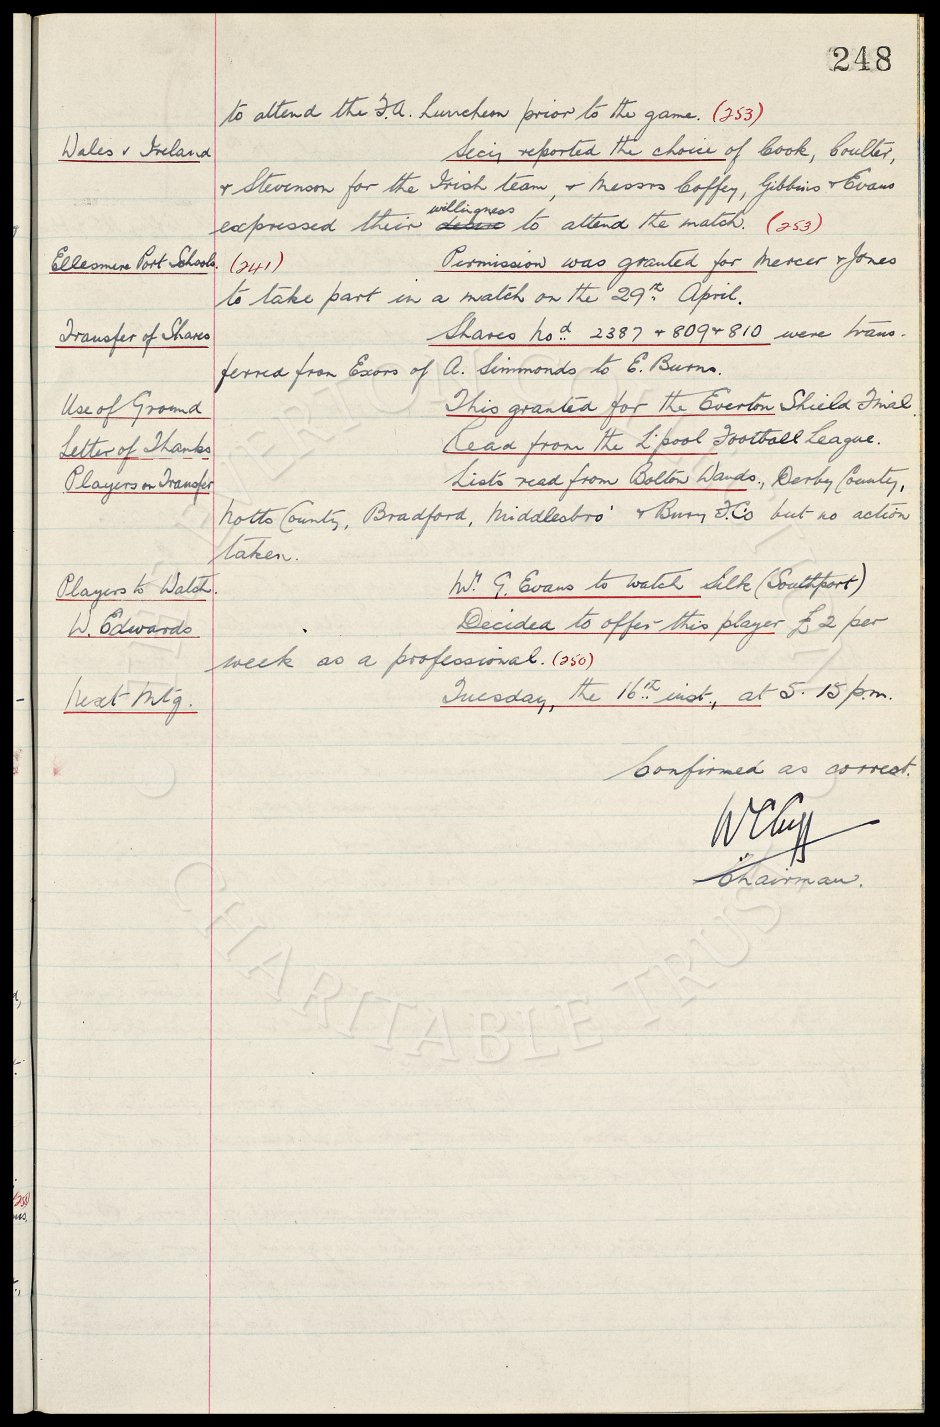 248
to attend the F.A. Luncheon prior to the game. (253)
Wales v Ireland Secy reported the choice of Cook, Coulter,
& Stevenson for the Irish team, & Messrs Coffey, Gibbins & Evans
expressed their desire willingness to attend the match. (253)
Ellesmere Port Schools. (241) Permission was granted for Mercer & Jones
to take part in a match on the 29th April.
Transfer of Shares Shares Nod 2387 & 809 & 810 were trans-
ferred from Exors of A. Simmonds to E. Burns.
Use of Ground This granted for the Everton Shield Final.
Letter of Thanks Read from the L'pool Football League.
Players on Transfer Lists read from Bolton Wands., Derby County,
Notts County, Bradford, Middlesbro' & Bury F.Cs but no action
taken.
Players to Watch. Mr G. Evans to watch Silk (Southport)
W. Edwards Decided to offer this player £2 per
week as a professional. (250)
Next Mtg. Tuesday, the 16th inst., at 5.15 p.m.
Confirmed as correct.
W C Cuff
Chairman.
EVERTON
CHARITABLE TRUST